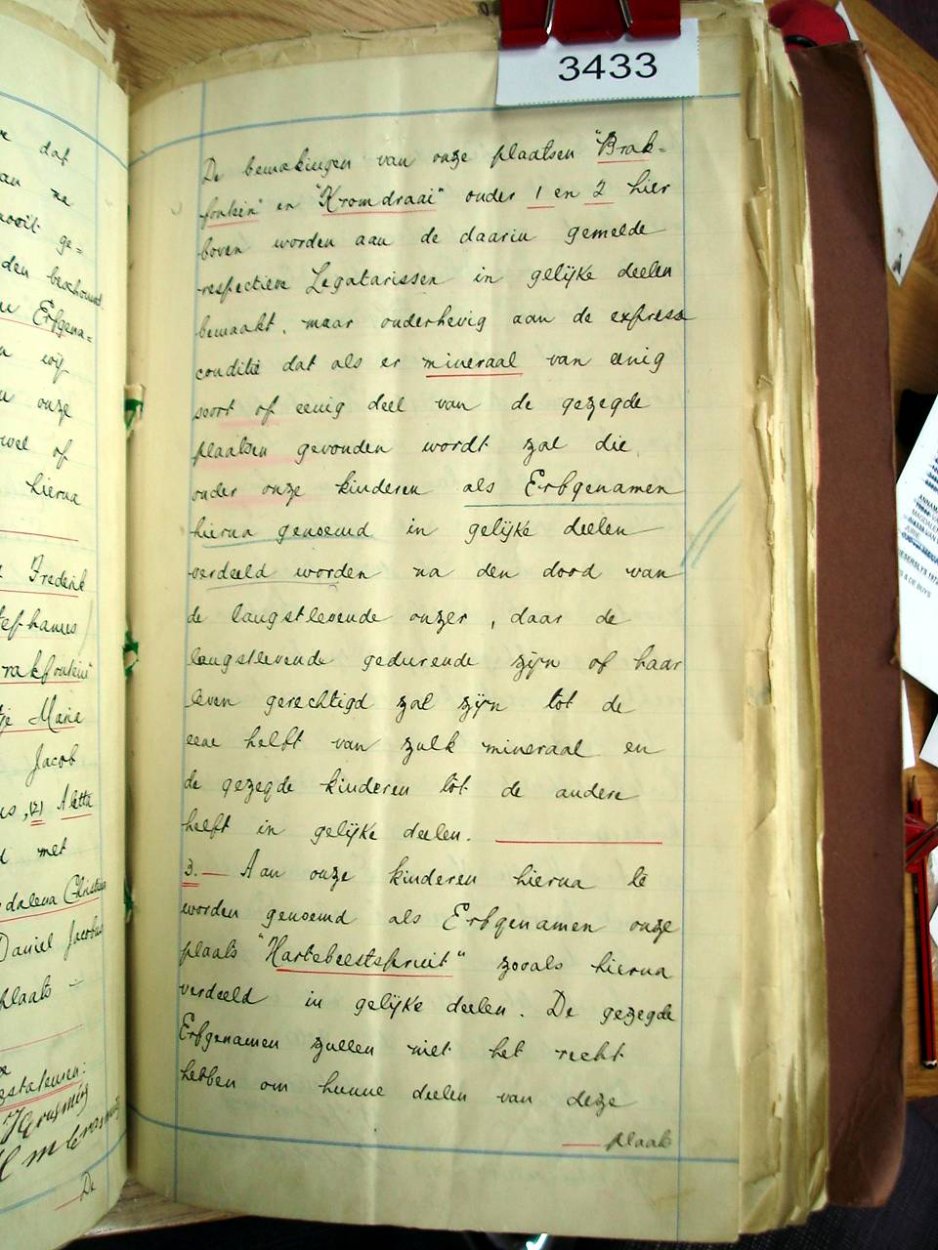 3433
De bemakingen van onze plaatsen "Brak-
fontein" en "Kromdraai" onder 1 en 2 hier
boven worden aan de daarin gemelde
respectieve Legatarissen in gelijke deelen
bemaakt, maar onderhevig aan de expresse
conditie dat als er mineraal van eenig
soort of eenig deel van de gezegde
plaatsen gevonden wordt zal die
onder onze kinderen als Erfgenamen
hierna genoemd in gelijke deelen
verdeeld worden na den dood van
de langstlevende onzer, daar de
langstlevende gedurende zijn of haar
leven gerechtigd zal zijn tot de
eene helft van zulk mineraal en
de gezegde kinderen tot de andere
helft in gelijke deelen.
3.- Aan onze kinderen hierna te
worden genoemd als Erfgenamen onze
plaats "Hartebeestspruit" zooals hierna
verdeeld in gelijke deelen. De gezegde
Erfgenamen zullen niet het recht
hebben om hunne deelen van deze
plaats
dat
an ne
nooit ge=
den beschouwd
Erfgena=
wij
onze
wel of
hierna
Frederik
Stephanus
rakfontein"
tje Maria
Jacob
(2) Aletta
met
dalena Christina
Daniel Jacobus
plaats -
De